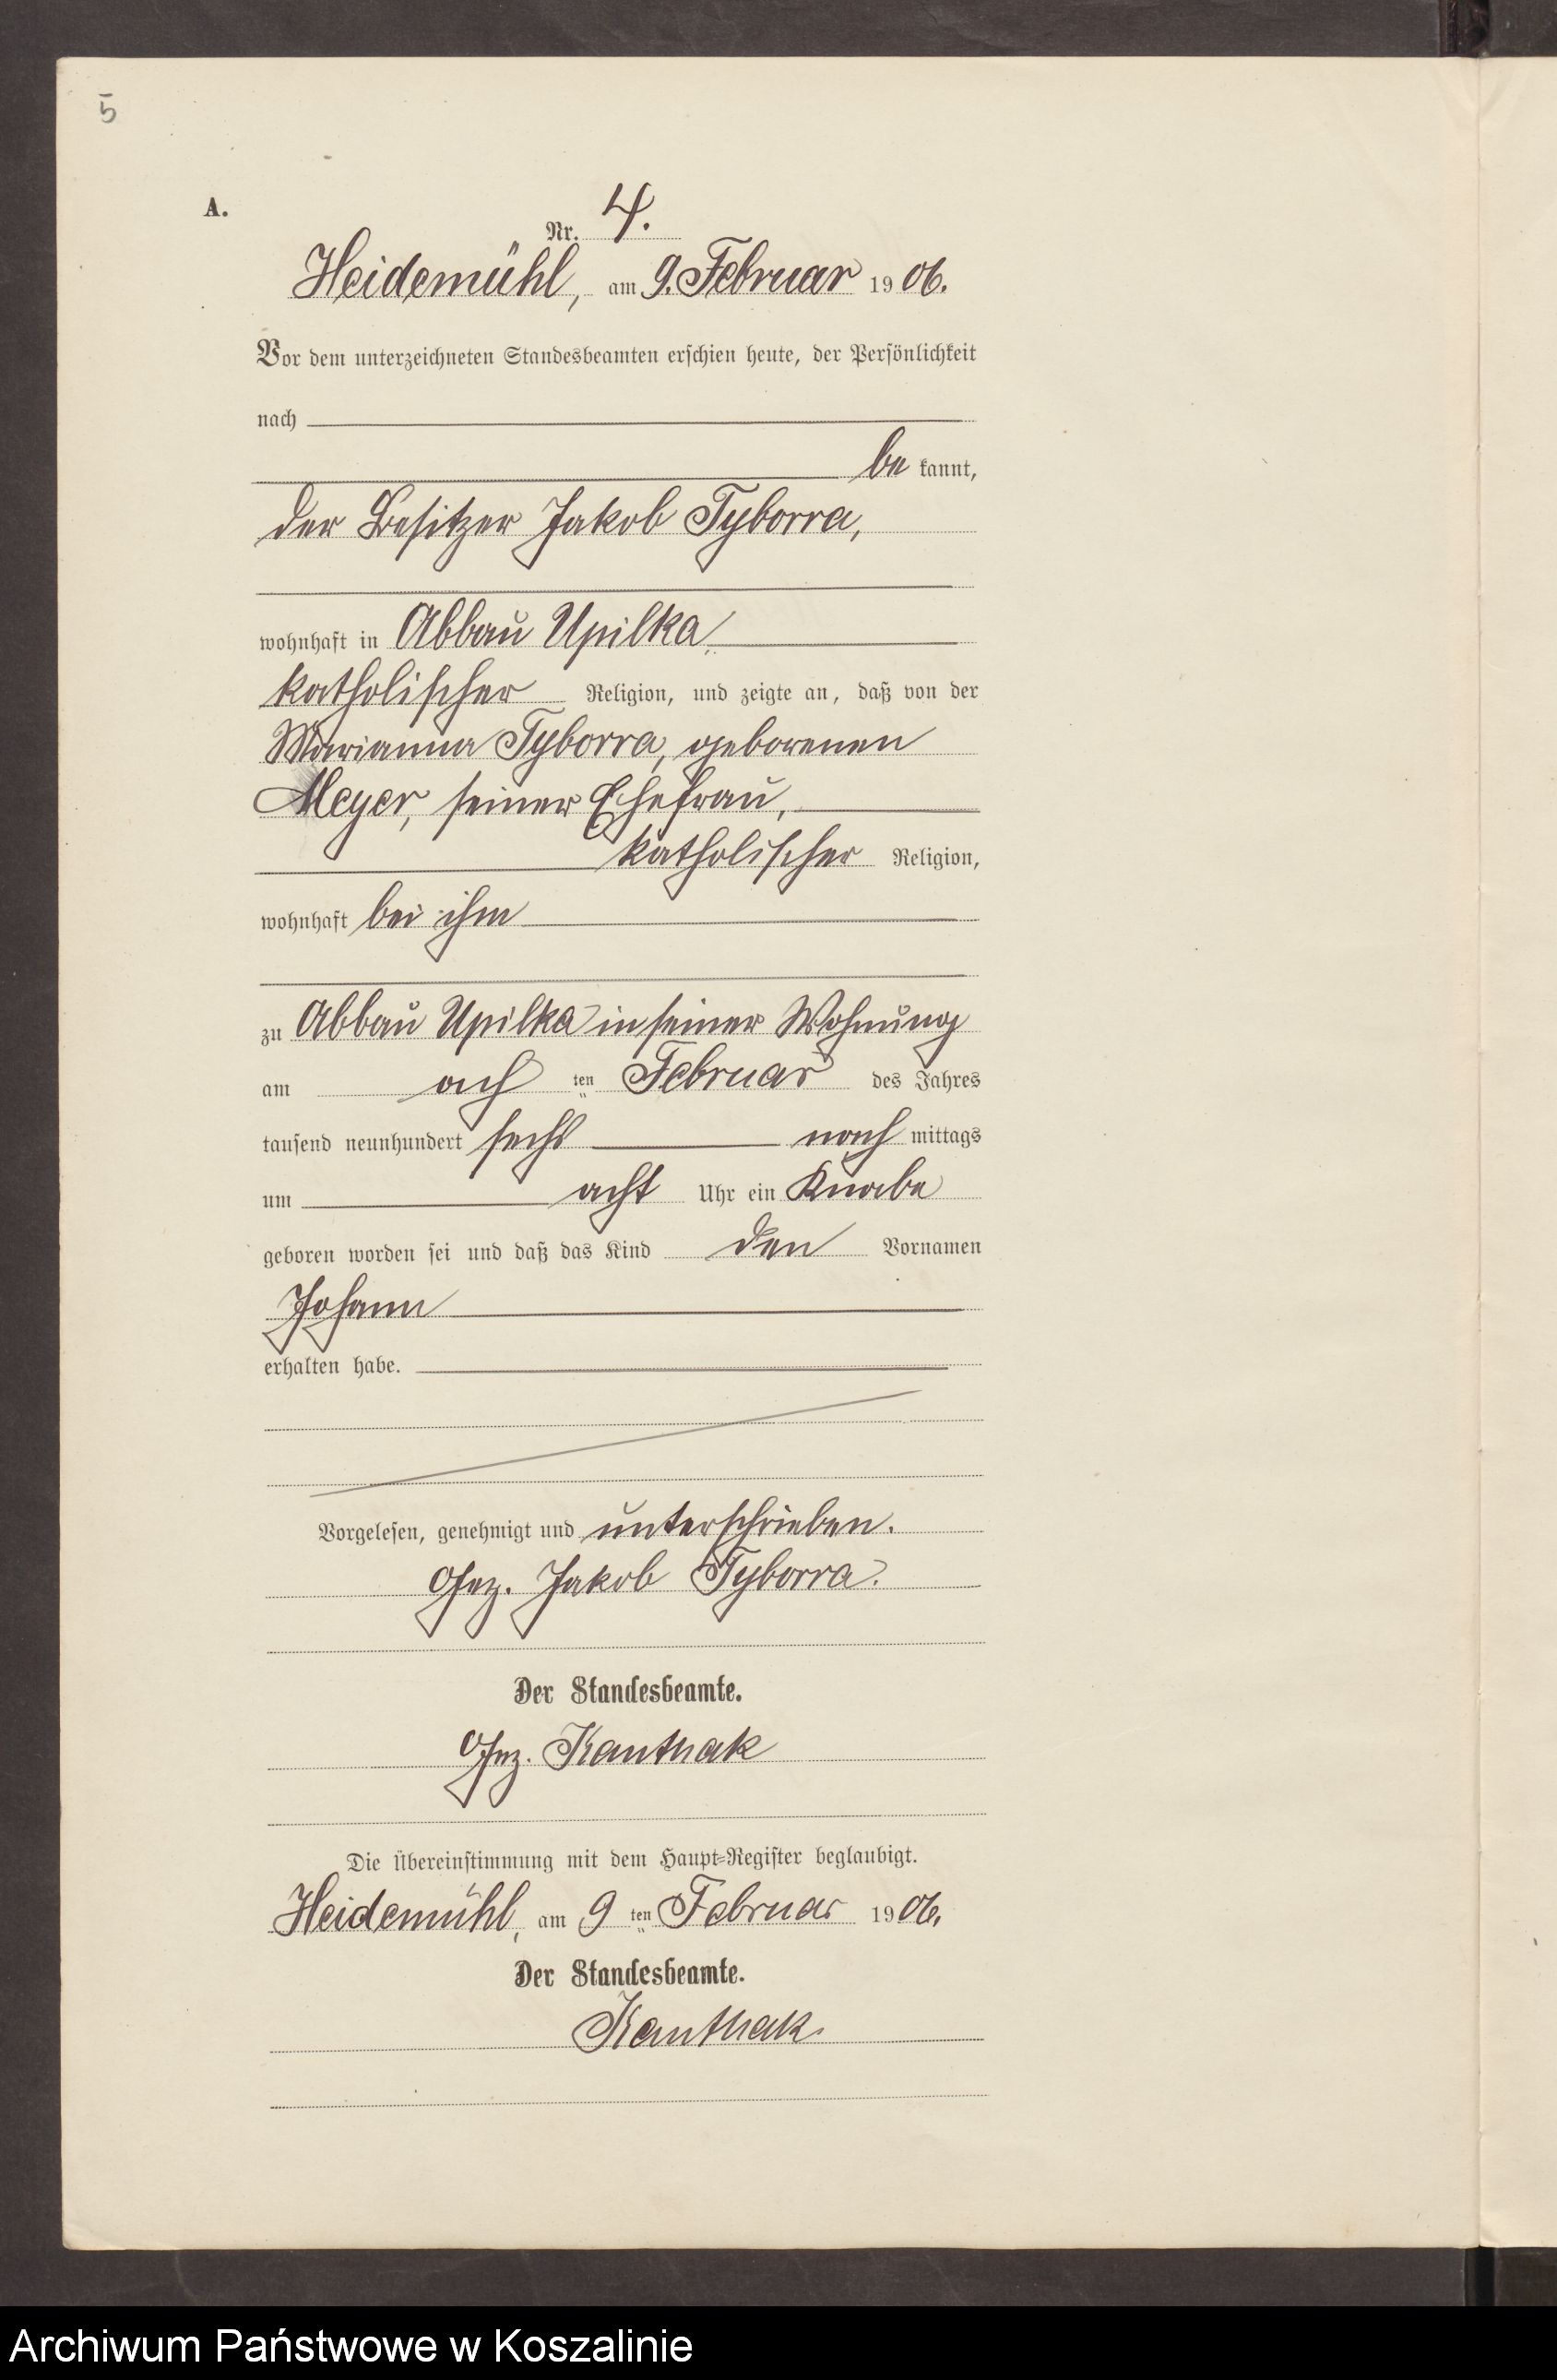 5
A.
Nr. 4.
Heidemühl, am 9. Februar 1906.
Vor dem unterzeichneten Standesbeamten erschien heute, der Persönlichkeit
nach
be kannt,
der Besitzer Jakob Tyborra,
wohnhaft in Abbau Upilka,
katholischer Religion, und zeigte an, daß von der
Marianna Tyborra, geborenen
Meyer, seiner Ehefrau,
katholischer Religion,
wohnhaft bei ihm
zu Abbau Upilka in seiner Wohnung
am ach ten Februar des Jahres
tausend neunhundert sechs nach mittags
um acht Uhr ein Knabe
geboren worden sei und daß das Kind den Vornamen
Johann
erhalten habe.
Vorgelesen, genehmigt und unterschrieben.
Gez. Jakob Tyborra.
Der Standesbeamte.
Gez. Kanthak
Die Übereinstimmung mit dem Haupt-Register beglaubigt.
Heidemühl, am 9 ten Februar 1906.
Der Standesbeamte.
Kanthak.
Archiwum Państwowe w Koszalinie